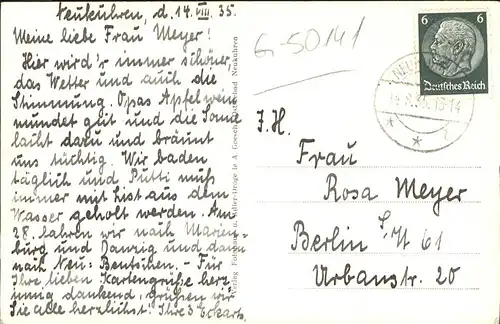 Neukuhren, d. 14. VIII. 35.
Meine liebe Frau Meyer!
Hier wird's immer schöner
das Wetter und auch die
Stimmung. Opas Apfelwein
mundet gut und die Sonne
lacht dazu und bräunt
uns tüchtig. Wir baden
täglich und Putti muß
immer mit List aus dem
Wasser geholt werden. Am
28. fahren wir nach Marien-
burg und Danzig und dann
nach Neu-Bentschen. - Für
Ihre lieben Kartengrüße herz
dankend, grüßen wir
Sie alle herzlichst! Ihre 3 Eckarts
G-50141
Neukuhren
6 6
Deutsches Reich
I. H.
Frau
Rosa Meyer
Berlin S/W 61
Urbanstr. 20